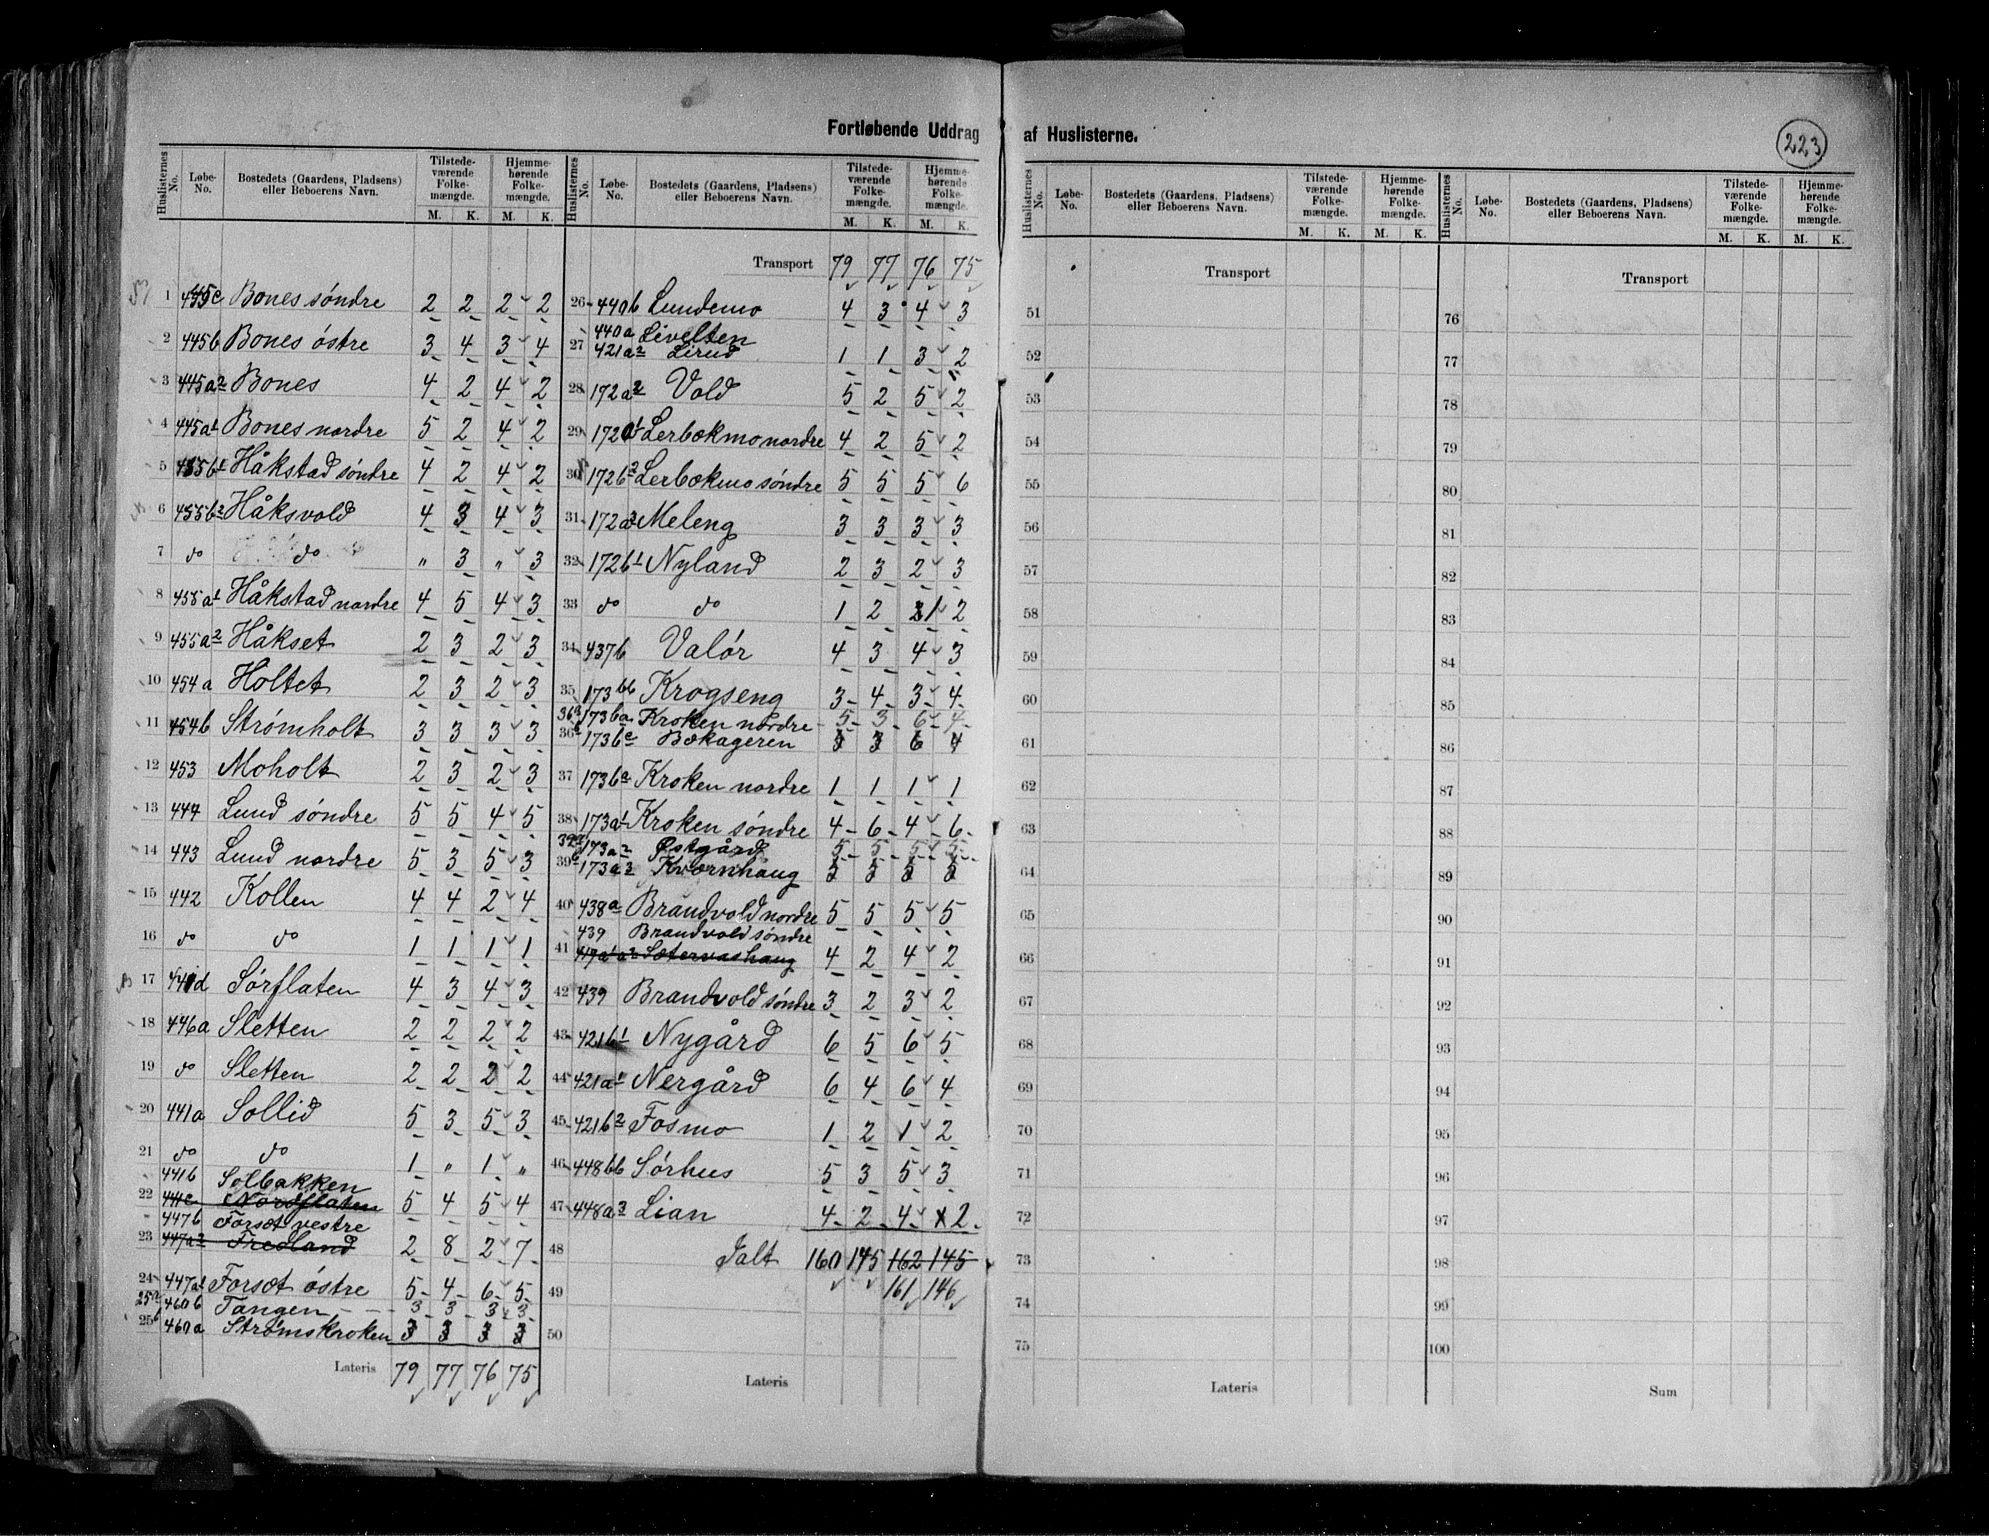 Fortløbende Uddrag af Huslisterne.
223
Huslisternes No. Løbe-No. Bostedets (Gaardens, Pladsens) eller Beboerens Navn. Tilstedeværende Folkemængde. M. K. Hjemmehørende Folkemængde. M. K.
1 445c Bones søndre 2 2 2 2
2 445b Bones østre 3 4 3 4
3 445a2 Bones 4 2 4 2
4 445a1 Bones nordre 5 2 4 2
5 455b1 Håkstad søndre 4 2 4 2
6 455b2 Håksvold 4 3 4 3
7 do do " 3 " 3
8 455a1 Håkstad nordre 4 5 4 3
9 455a2 Håkset 2 3 2 3
10 454a Holtet 2 3 2 3
11 454b Strømholt 3 3 3 3
12 453 Moholt 2 3 2 3
13 444 Lund søndre 5 5 4 5
14 443 Lund nordre 5 3 5 3
15 442 Kollen 4 4 2 4
16 do do 1 1 1 1
17 441d Sørflaten 4 3 4 3
18 446a Sletten 2 2 2 2
19 do Sletten 2 2 2 2
20 441a Sollid 5 3 5 3
21 do do 1 " 1 "
441b Solbakken
22 441c Nordflaten 5 4 5 4
447b Forset vestre
23 447a2 Fredland 2 8 2 7
24 447a1 Forset østre 5 4 6 5
25a 460b Tangen 3 3 3 3
25b 460a Strømskroken 3 3 3 3
Lateris 79 77 76 75
Huslisternes No. Løbe-No. Bostedets (Gaardens, Pladsens) eller Beboerens Navn. Tilstedeværende Folkemængde. M. K. Hjemmehørende Folkemængde. M. K.
Transport 79 77 76 75
26 440b Lundemo 4 3 4 3
440a Livelten
27 421a2 Lirud 1 1 3 2
28 172a2 Vold 5 2 5 2
29 172a1 Lerbækmo nordre 4 2 5 2
30 172b2 Lerbækmo søndre 5 5 5 6
31 172a3 Meleng 3 3 3 3
32 172b1 Nyland 2 3 2 3
33 do do 1 2 1 2
34 437b Valør 4 3 4 3
35 173bb Krogseng 3 4 3 4
36a 173ba Kroken nordre 5 3 6 4
36b 173bc Bækageren 3 3 6 4
37 173ba Kroken nordre 1 1 1 1
38 173a1 Kroken søndre 4 6 4 6
39a 173a2 Østgård 5 5 5 5
39b 173a3 Kværnhaug 3 3 3 3
40 438a Brandvold nordre 5 5 5 5
439 Brandvold søndre
41 417a1a2 Sætervashaug 4 2 4 2
42 439 Brandvold søndre 3 2 3 2
43 421b1 Nygård 6 5 6 5
44 421a1 Nergård 6 4 6 4
45 421b2 Fosmo 1 2 1 2
46 448bb Sørhus 5 3 5 3
47 448a3 Lian 4 2 4 2
48 Ialt 160 145 162 145
49 161 146
50
Lateris
Huslisternes No. Løbe-No. Bostedets (Gaardens, Pladsens) eller Beboerens Navn. Tilstedeværende Folkemængde. M. K. Hjemmehørende Folkemængde. M. K.
Transport
51
52
53
54
55
56
57
58
59
60
61
62
63
64
65
66
67
68
69
70
71
72
73
74
75
Lateris
Huslisternes No. Løbe-No. Bostedets (Gaardens, Pladsens) eller Beboerens Navn. Tilstedeværende Folkemængde. M. K. Hjemmehørende Folkemængde. M. K.
Transport
76
77
78
79
80
81
82
83
84
85
86
87
88
89
90
91
92
93
94
95
96
97
98
99
100
Sum